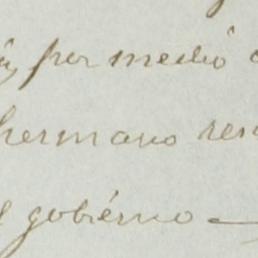 por medio
hermano
gobierno